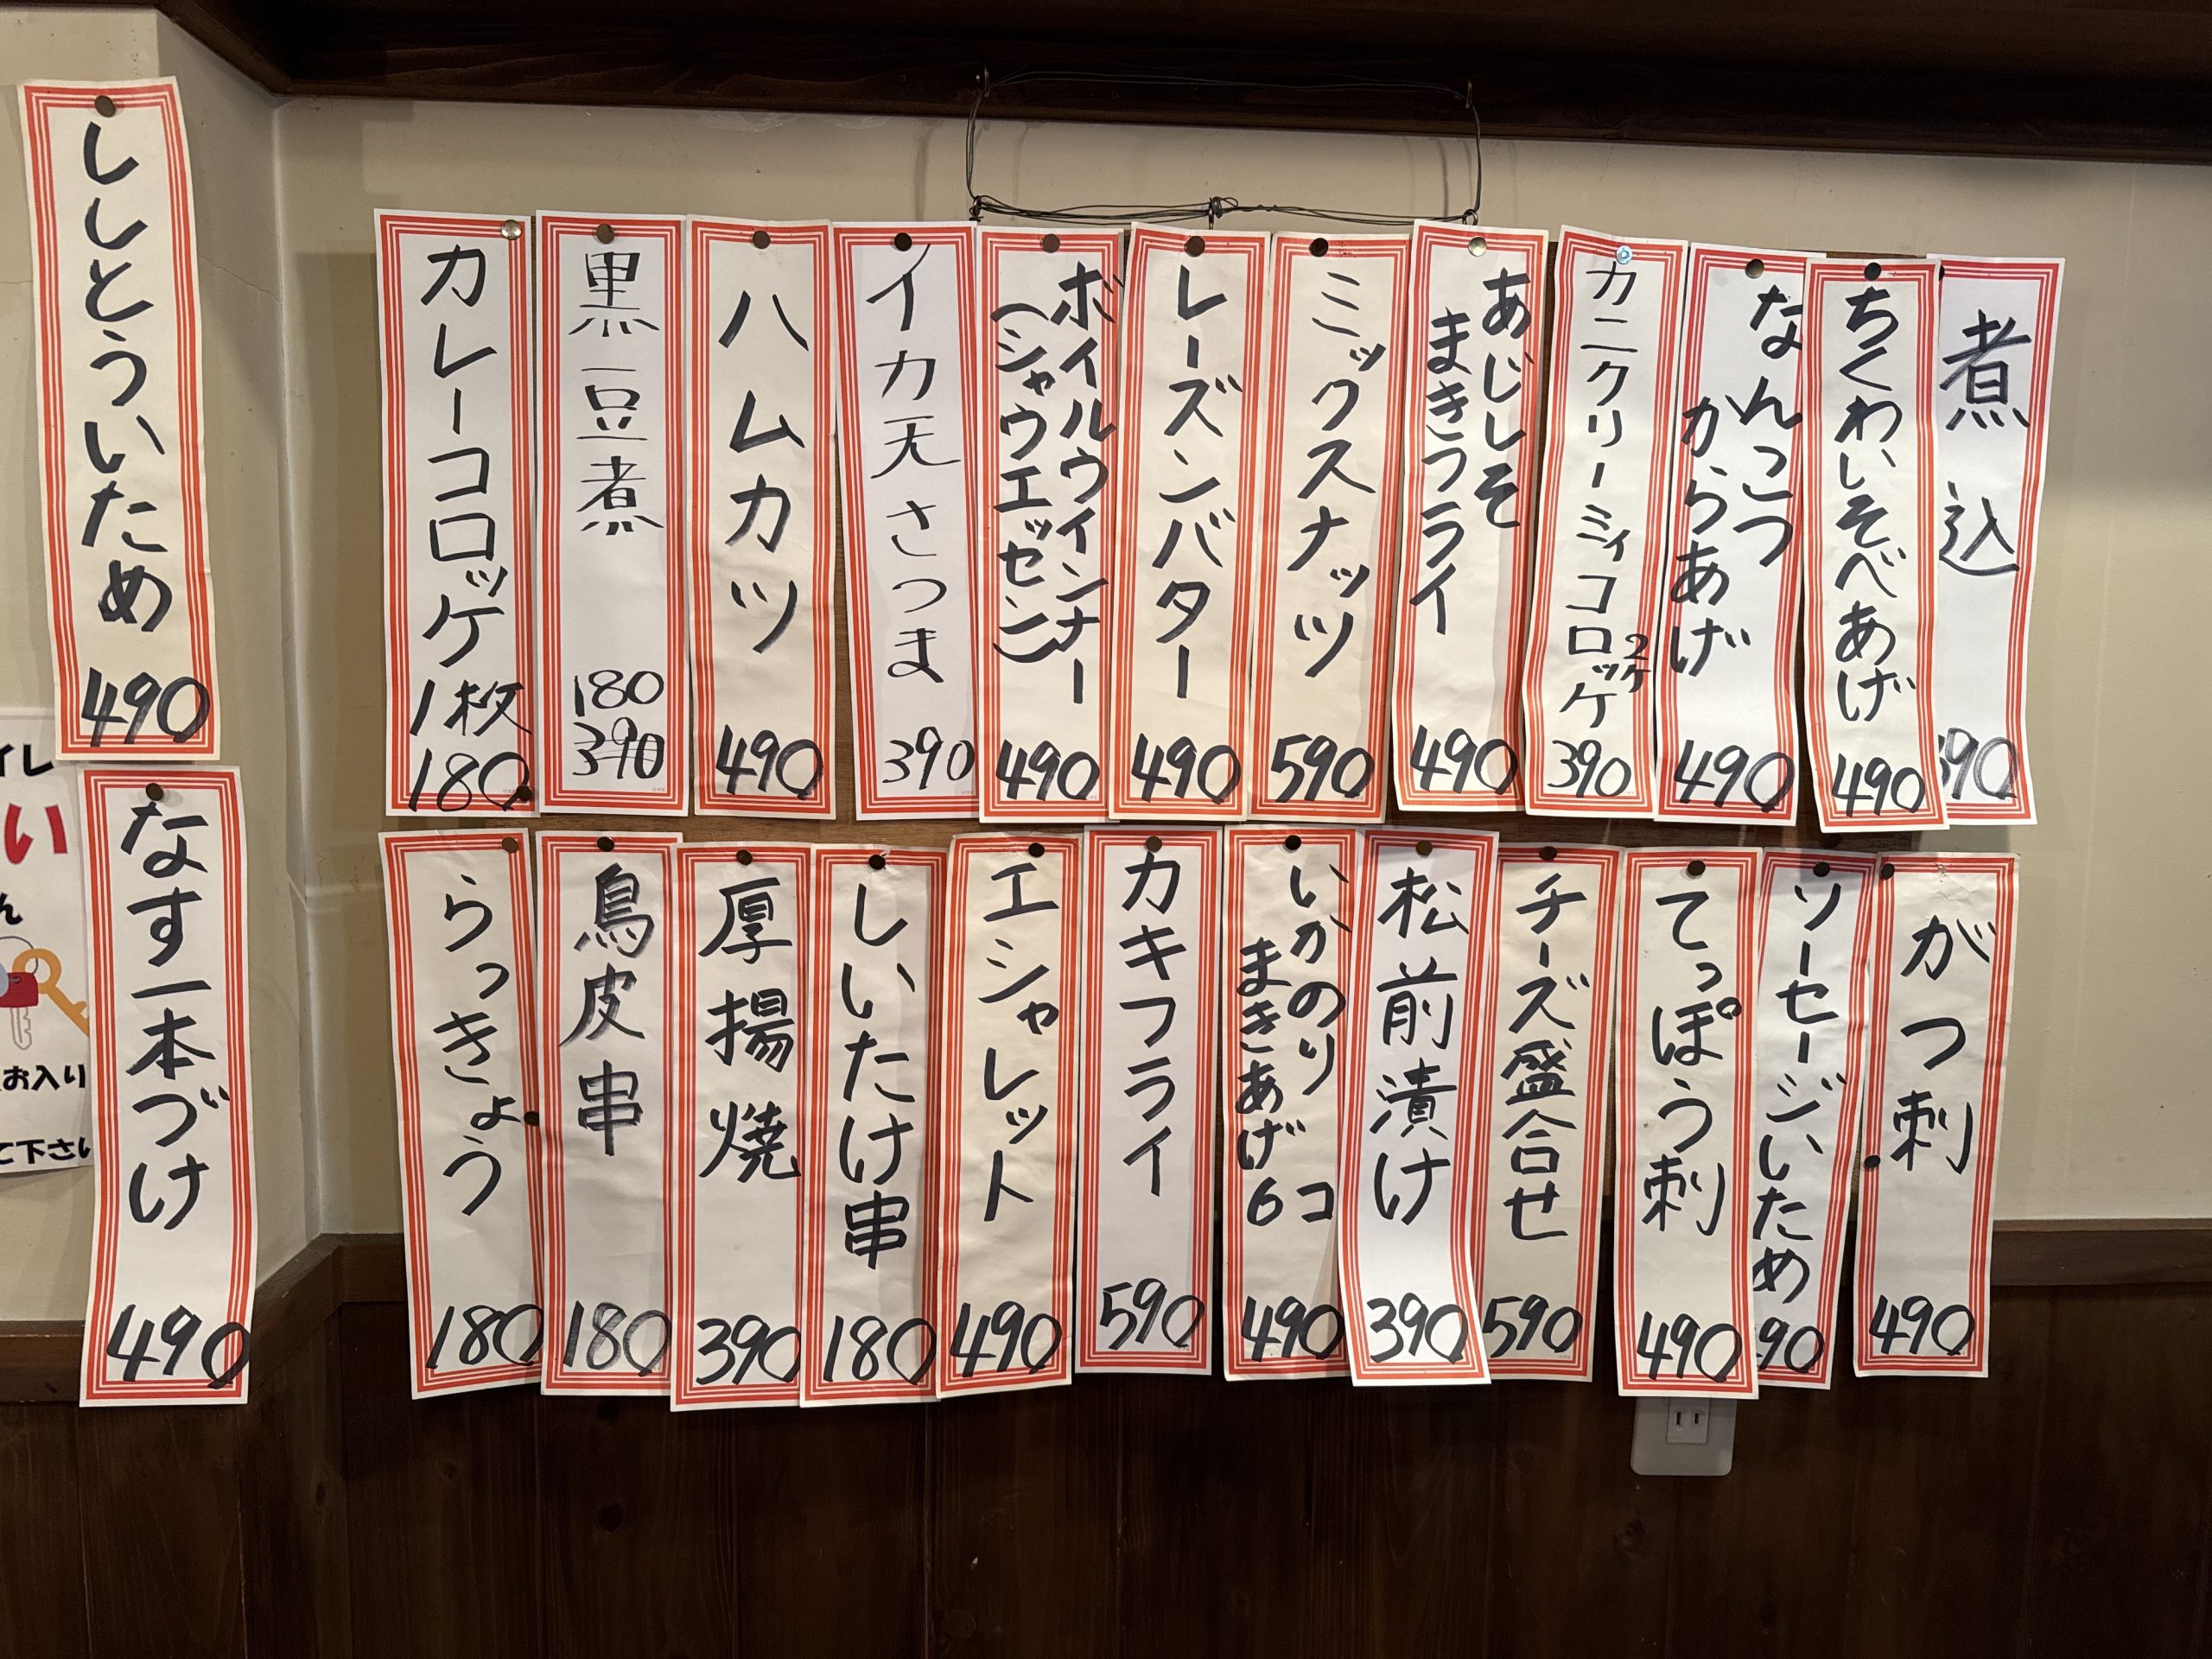 煮込
390
ちくわいそべあげ
490
なんこつ
からあげ
490
カニクリーミィコロッケ
2ケ
390
あじしそ
まきフライ
490
ミックスナッツ
590
レーズンバター
490
ボイルウインナー
(シャウエッセン)
490
イカ天さつま
390
ハムカツ
490
黒豆煮
180
390
カレーコロッケ
1枚
180
ししとういため
490
がつ刺
490
ソーセージいため
90
てっぽう刺
490
チーズ盛合せ
590
松前漬け
390
いかのり
まきあげ6コ
490
カキフライ
590
エシャレット
490
しいたけ串
180
厚揚焼
390
鳥皮串
180
らっきょう
180
なす一本づけ
490
イレ
い
ん
お入り
て下さい